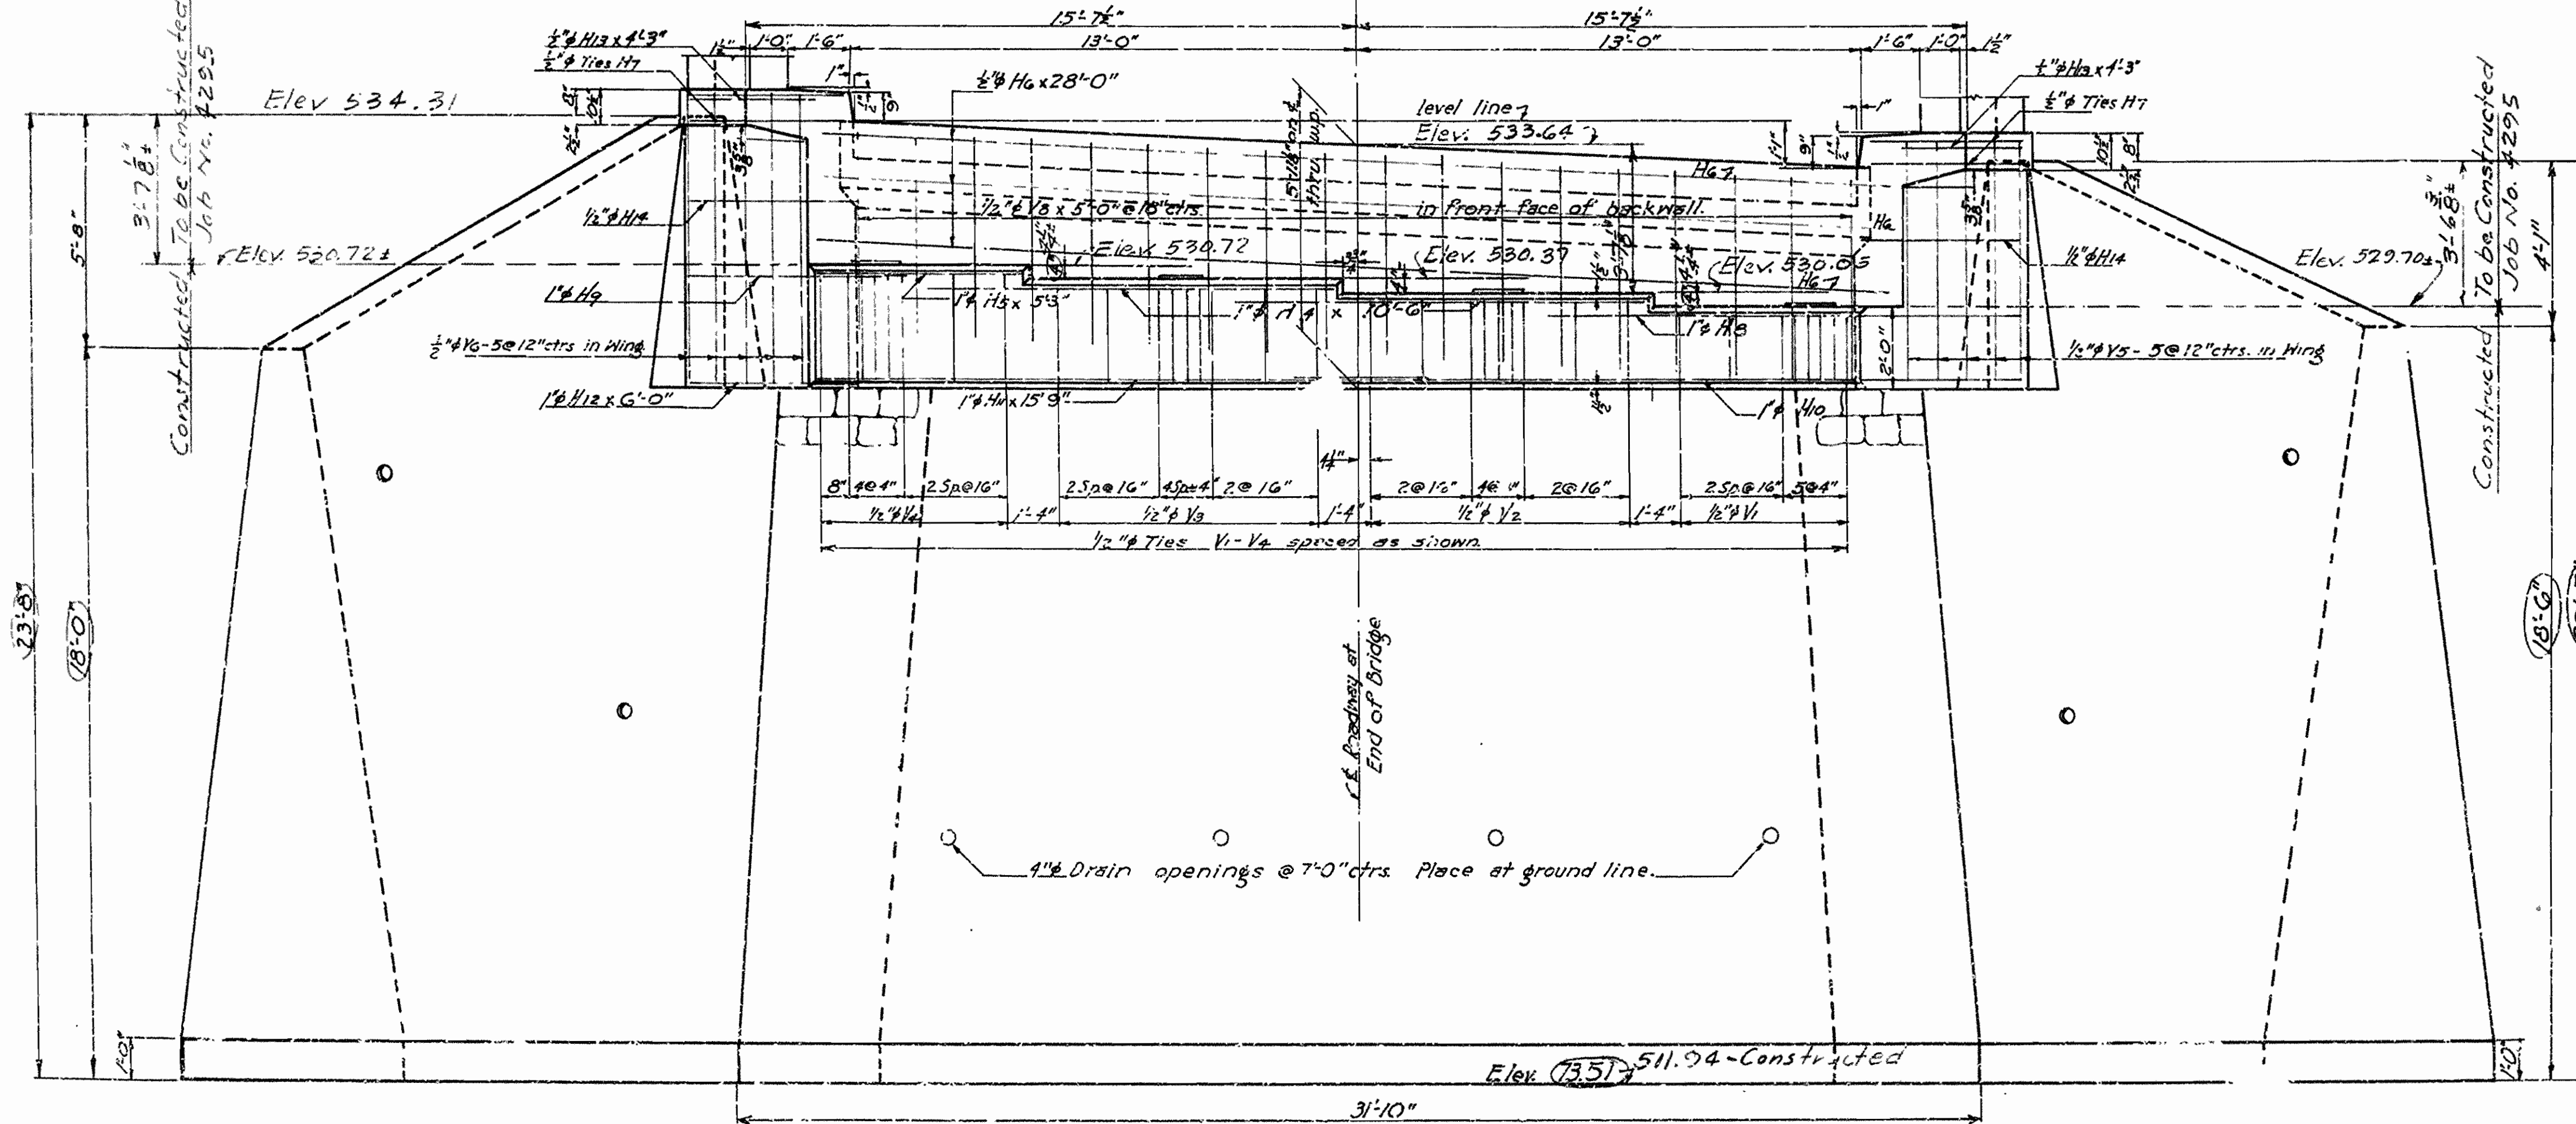 15'-7½" 15'-7½"
½"φ H13 x 4'-3" 1½" 1'-0" 1'-6" 13'-0" 13'-0" 1'-6" 1'-0" 1½"
½"φ Ties H7
½"φ H6 x 28'-0"
½"φ H13 x 4'-3"
½"φ Ties H7
Elev 534.31
8" 10½"
1" 9"
level line
Elev. 533.64
1"
9"
10½" 8"
To be Constructed
Job No. 4295
Constructed
3'-7⅛"±
5'-8"
Elev. 530.72±
½"φ H14
½"φ V8 x 5'-0" @ 18" ctrs. in front face of backwall.
thru w.p.
H6
H6
Elev. 530.72
Elev. 530.37
Elev. 530.05
H6
½"φ H14
Elev. 529.70±
4'-1"
To be Constructed
Job No. 4295
Constructed
1"φ H9
1"φ H5 x 5'3"
1"φ H4 x 10'-6"
1"φ H8
½"φ V6-5@12" ctrs in Wing
2'-0"
½"φ V5-5@12" ctrs. in Wing
1"φ H12 x 6'-0"
1"φ H11 x 15'9"
1"φ H10
4¼"
8" 4@4" 2Sp@16" 2Sp@16" 4Sp@4" 2@16" 2@16" 2@16" 2Sp@16" 5@4"
½"φ V4 1'-4" ½"φ V3 1'-4" ½"φ V2 1'-4" ½"φ V1
½"φ Ties V1-V4 spaced as shown
23'-8"
18'-0"
18'-6"
℄ Roadway at
End of Bridge
4"φ Drain openings @ 7'-0" ctrs. Place at ground line.
1'-0"
Elev. 73.51 511.94-Constructed
1'-0"
31'-10"